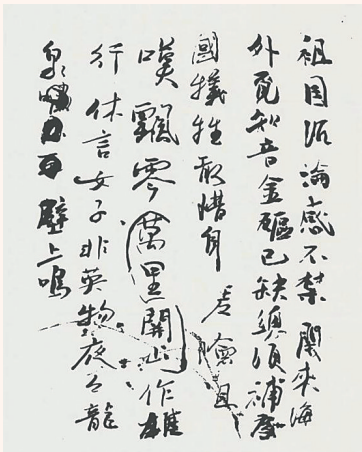 祖国沉淪感不禁 閑來海
外覓知音金甌已缺總須補爲
國犧牲敢惜身 嗟險阻
嘆飄零萬里關山作雄
行休言女子非英物夜々龍
泉壁上鳴